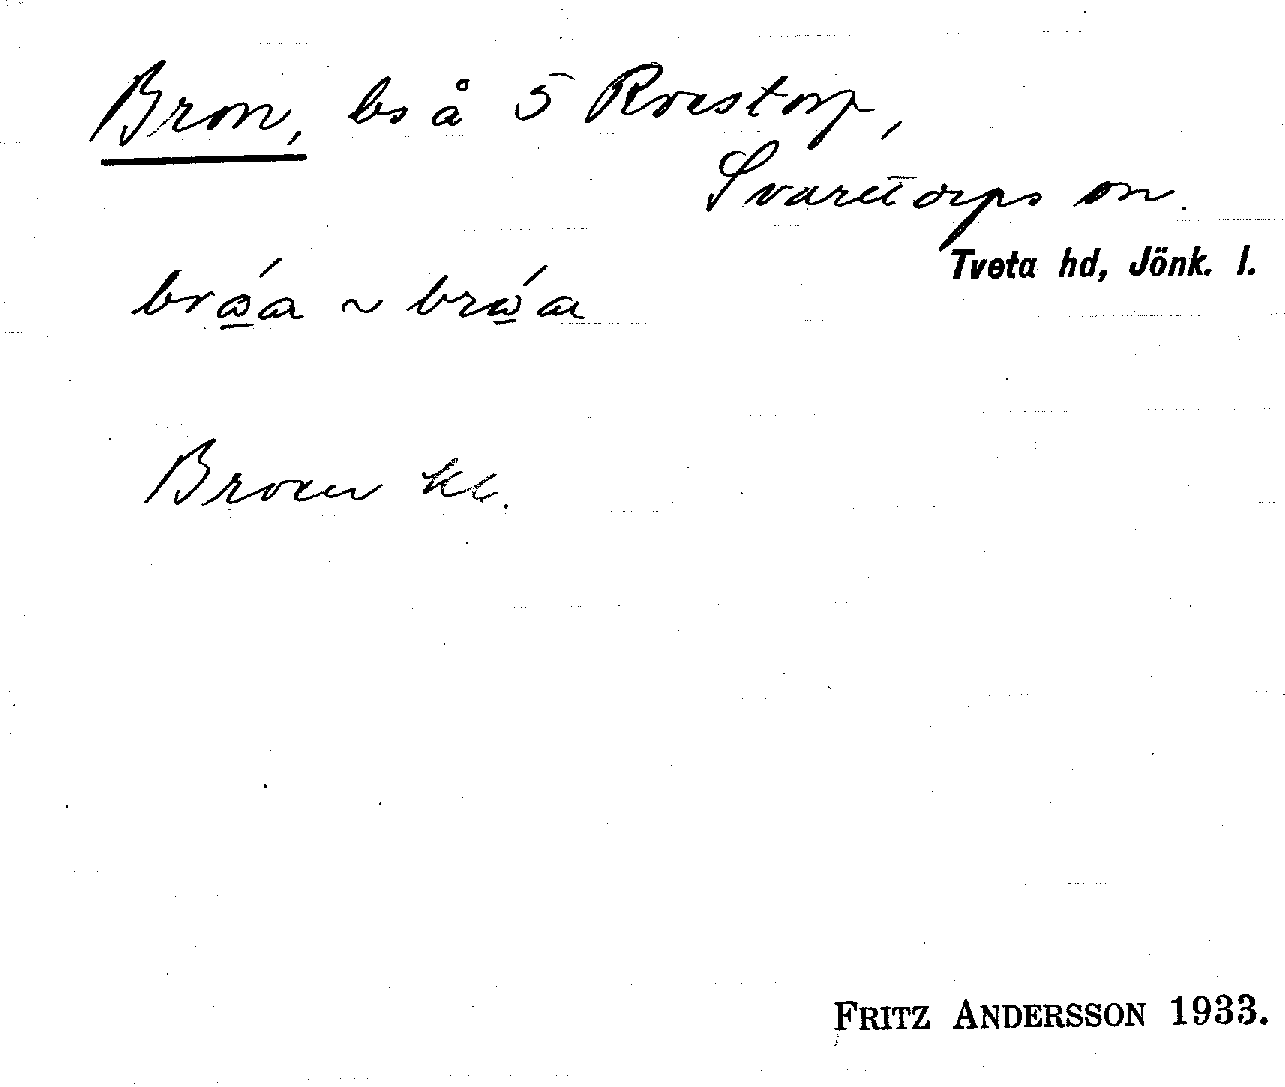 Bron, bs å 5 Roestorp,
Svarttorps sn.
Tveta hd, Jönk. l.
Broen kl.
FRITZ ANDERSSON 1933.